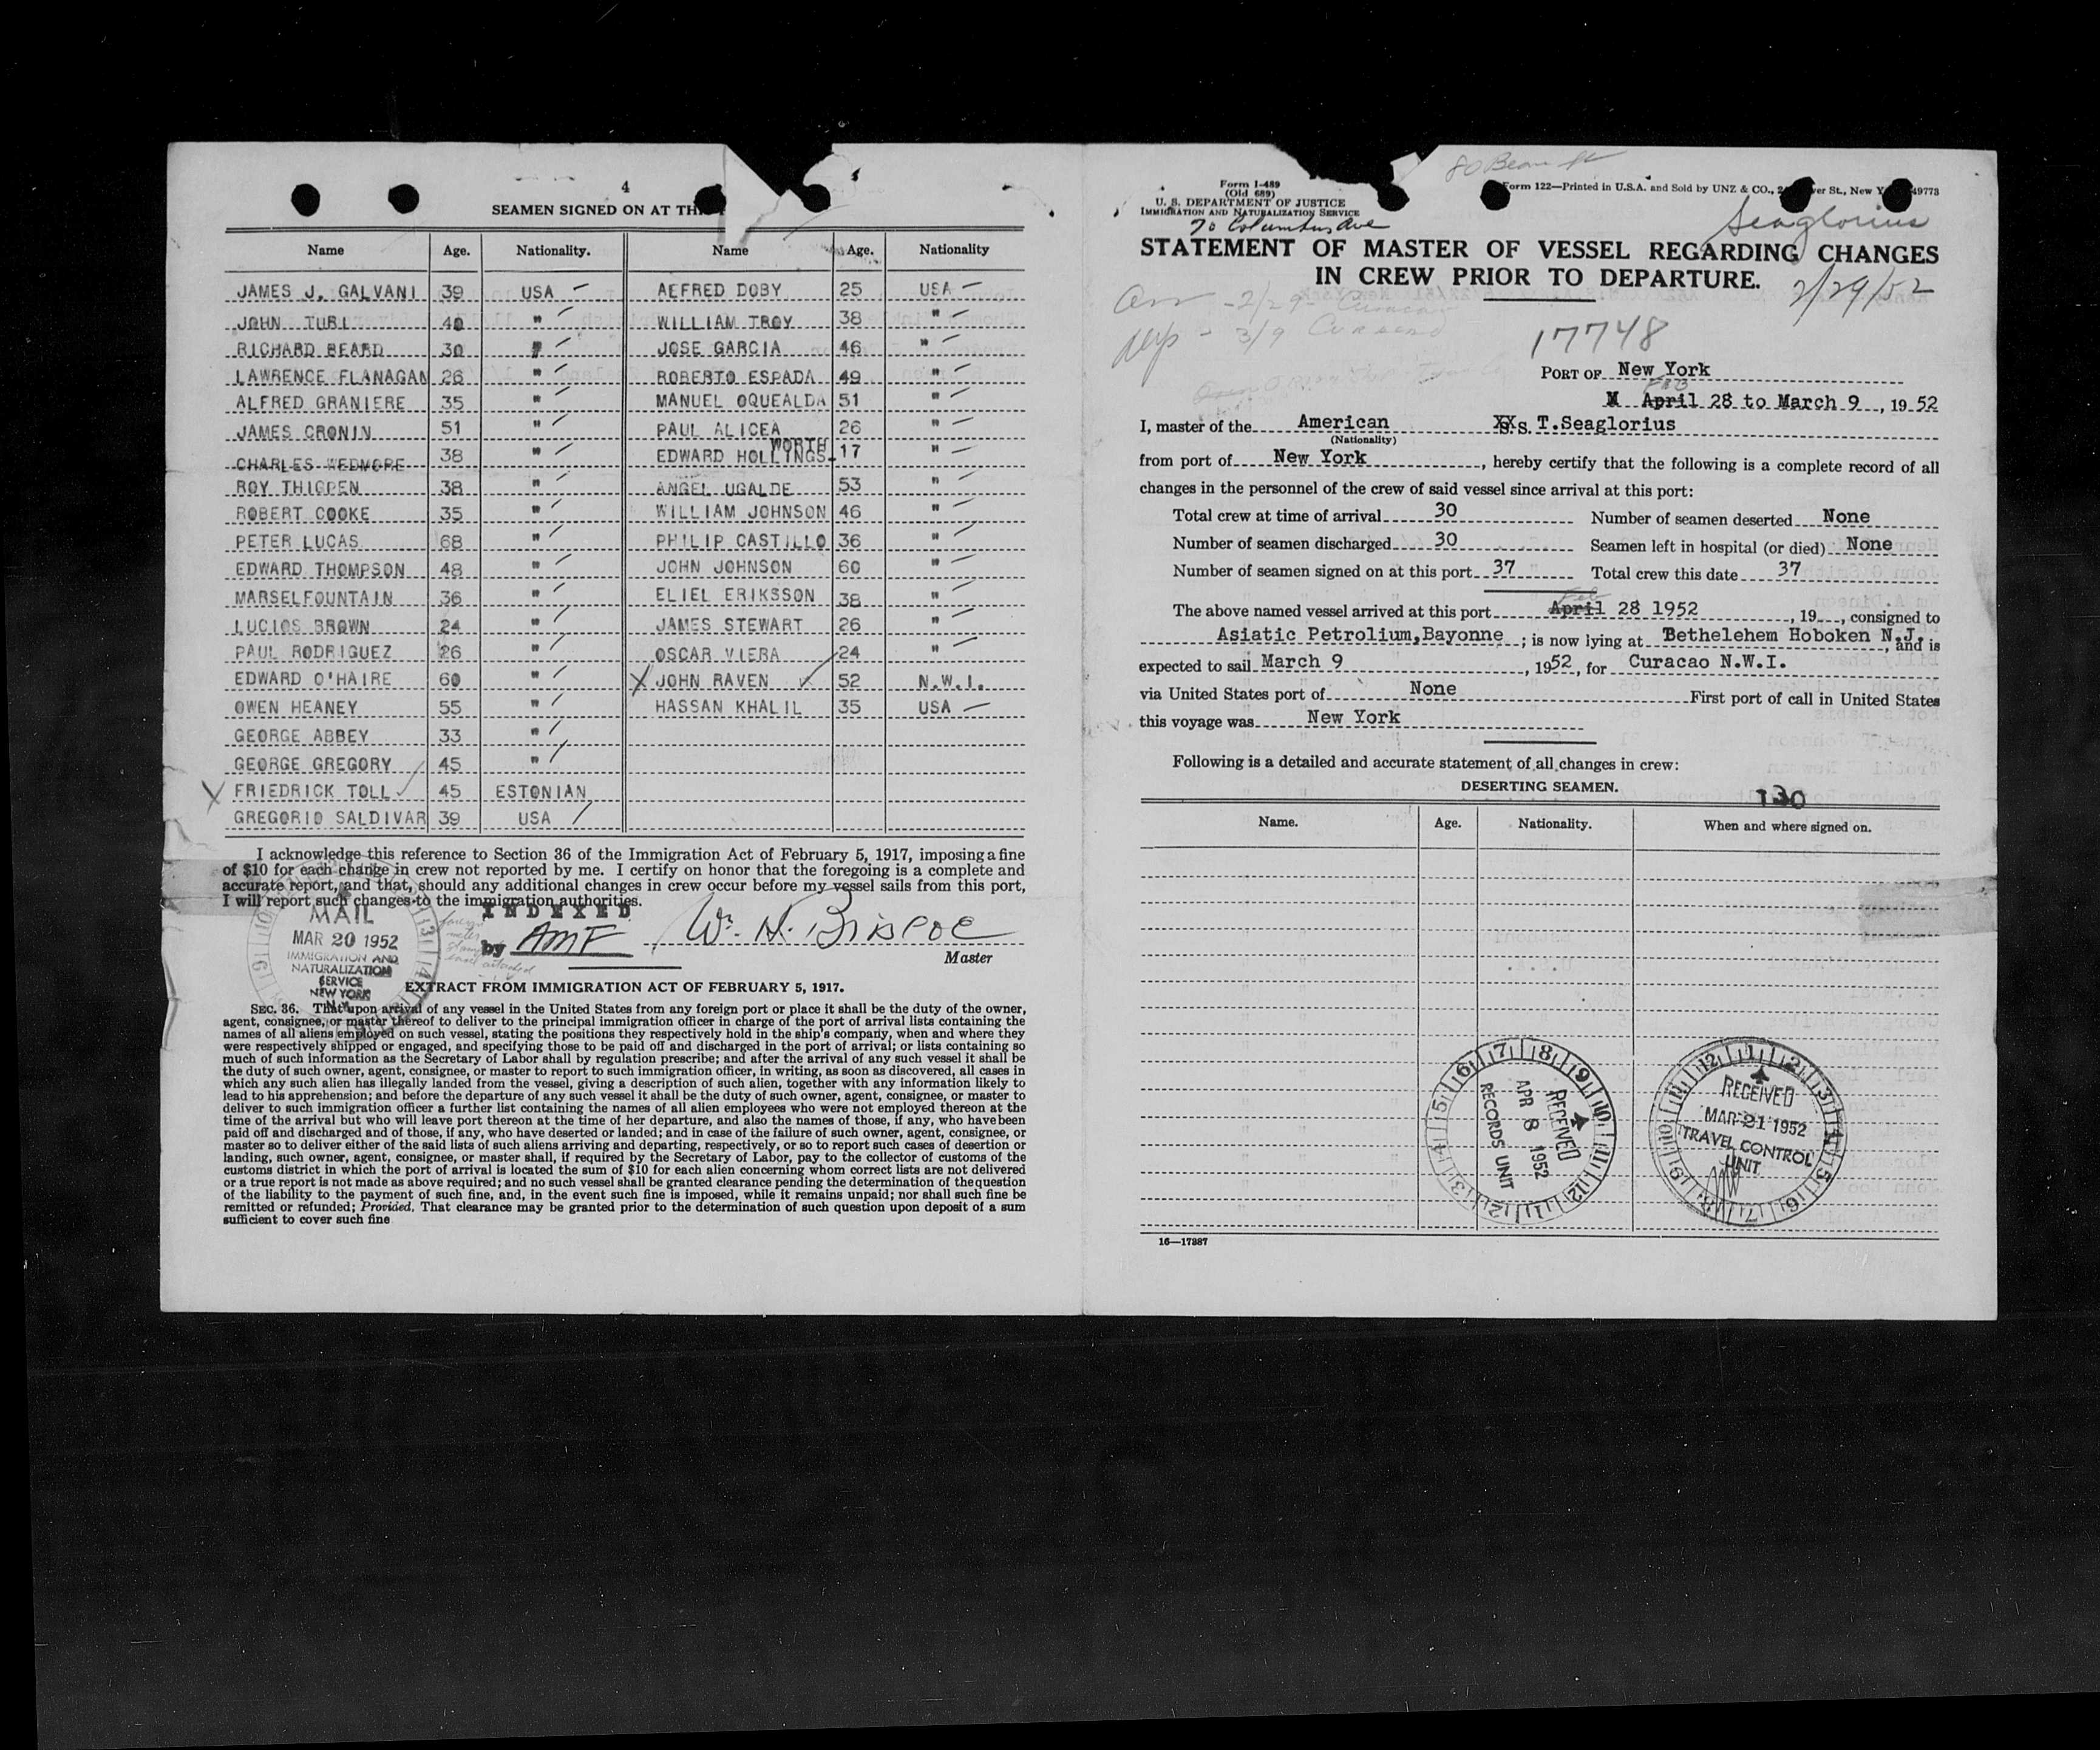 4
SEAMEN SIGNED ON AT TH
Name Age. Nationality. Name Age. Nationality
JAMES J. GALVANI 39 USA — ALFRED DOBY 25 USA —
JOHN TURI 40 " / WILLIAM TROY 38 " —
RICHARD BEARD 30 " / JOSE GARCIA 46 " —
LAWRENCE FLANAGAN 26 " / ROBERTO ESPADA 49 " —
ALFRED GRANIERE 35 " / MANUEL OQUEALDA 51 " —
JAMES CRONIN 51 " / PAUL ALICEA 26 " —
CHARLES WEDMORE 38 " / EDWARD HOLLINGS-WORTH 17 " —
ROY THIGPEN 38 " / ANGEL UGALDE 53 " —
ROBERT COOKE 35 " / WILLIAM JOHNSON 46 " —
PETER LUCAS 68 " / PHILIP CASTILLO 36 " —
EDWARD THOMPSON 48 " / JOHN JOHNSON 60 " —
MARSELFOUNTAIN 36 " / ELIEL ERIKSSON 38 " —
LUCIOS BROWN 24 " / JAMES STEWART 26 " —
PAUL RODRIGUEZ 26 " / OSCAR VIERA 24 " —
EDWARD O'HAIRE 60 " / X JOHN RAVEN ✓ 52 N.W.I.
OWEN HEANEY 55 " / HASSAN KHALIL 35 USA —
GEORGE ABBEY 33 " /
GEORGE GREGORY 45 " /
X FRIEDRICK TOLL ✓ 45 ESTONIAN
GREGORIO SALDIVAR 39 USA /
I acknowledge this reference to Section 36 of the Immigration Act of February 5, 1917, imposing a fine
of $10 for each change in crew not reported by me. I certify on honor that the foregoing is a complete and
accurate report, and that, should any additional changes in crew occur before my vessel sails from this port,
I will report such changes to the immigration authorities.
INDEXED
by AMF
Wm. H. Briscoe
Master
MAIL
MAR 20 1952
IMMIGRATION AND
NATURALIZATION
SERVICE
NEW YORK
N.Y.
EXTRACT FROM IMMIGRATION ACT OF FEBRUARY 5, 1917.
SEC. 36. That upon arrival of any vessel in the United States from any foreign port or place it shall be the duty of the owner,
agent, consignee, or master thereof to deliver to the principal immigration officer in charge of the port of arrival lists containing the
names of all aliens employed on such vessel, stating the positions they respectively hold in the ship's company, when and where they
were respectively shipped or engaged, and specifying those to be paid off and discharged in the port of arrival; or lists containing so
much of such information as the Secretary of Labor shall by regulation prescribe; and after the arrival of any such vessel it shall be
the duty of such owner, agent, consignee, or master to report to such immigration officer, in writing, as soon as discovered, all cases in
which any such alien has illegally landed from the vessel, giving a description of such alien, together with any information likely to
lead to his apprehension; and before the departure of any such vessel it shall be the duty of such owner, agent, consignee, or master to
deliver to such immigration officer a further list containing the names of all alien employees who were not employed thereon at the
time of the arrival but who will leave port thereon at the time of her departure, and also the names of those, if any, who have been
paid off and discharged and of those, if any, who have deserted or landed; and in case of the failure of such owner, agent, consignee, or
master so to deliver either of the said lists of such aliens arriving and departing, respectively, or so to report such cases of desertion or
landing, such owner, agent, consignee, or master shall, if required by the Secretary of Labor, pay to the collector of customs of the
customs district in which the port of arrival is located the sum of $10 for each alien concerning whom correct lists are not delivered
or a true report is not made as above required; and no such vessel shall be granted clearance pending the determination of the question
of the liability to the payment of such fine, and, in the event such fine is imposed, while it remains unpaid; nor shall such fine be
remitted or refunded; Provided, That clearance may be granted prior to the determination of such question upon deposit of a sum
sufficient to cover such fine
80 Beaver St
Form I-489
(Old 689)
U. S. DEPARTMENT OF JUSTICE
IMMIGRATION AND NATURALIZATION SERVICE
70 Columbus Ave
Form 122—Printed in U.S.A. and Sold by UNZ & CO., 2 ver St., New Y 49773
Seaglorius
STATEMENT OF MASTER OF VESSEL REGARDING CHANGES
IN CREW PRIOR TO DEPARTURE.
2/29/52
Arr - 2/29 - Curacao
Dep - 3/9 Curacao
17748
PORT OF New York
Feb
April 28 to March 9, 1952
I, master of the American S.S. T.Seaglorius
(Nationality)
from port of New York, hereby certify that the following is a complete record of all
changes in the personnel of the crew of said vessel since arrival at this port:
Total crew at time of arrival 30 Number of seamen deserted None
Number of seamen discharged 30 Seamen left in hospital (or died) None
Number of seamen signed on at this port 37 Total crew this date 37
Feb
The above named vessel arrived at this port April 28 1952, 19__, consigned to
Asiatic Petrolium,Bayonne; is now lying at Bethelehem Hoboken N.J., and is
expected to sail March 9, 1952, for Curacao N.W.I.
via United States port of None First port of call in United States
this voyage was New York
Following is a detailed and accurate statement of all changes in crew:
DESERTING SEAMEN.
130
Name. Age. Nationality. When and where signed on.
RECEIVED
APR 8 1952
RECORDS UNIT
RECEIVED
MAR 21 1952
TRAVEL CONTROL
UNIT
16—17887